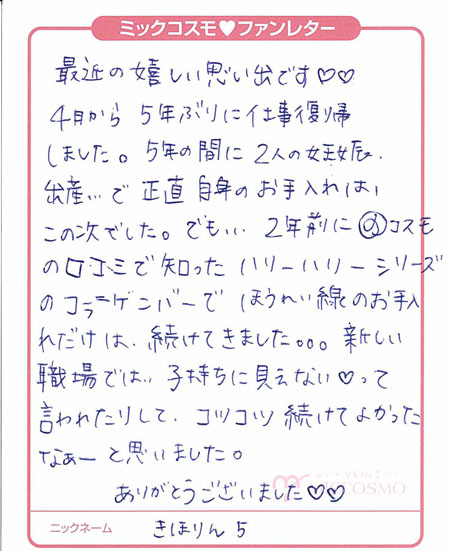 ミックコスモ♥ファンレター
最近の嬉しい思い出です♡♡
4月から 5年ぶりに仕事復帰
しました。5年の間に 2人の妊娠、
出産...で 正直 自身のお手入れは、
この次でした。でも... 2年前に @コスモ
の口コミで知った ハリーハリーシリーズ
のコラーゲンバーで ほうれい線のお手入
れだけは、続けてきました。。。新しい
職場では... 子持ちに見えない♡って
言われたりして、コツコツ続けてよかった
なぁーと思いました。
ありがとうございました♡♡
COSMO
ニックネーム きほりん5